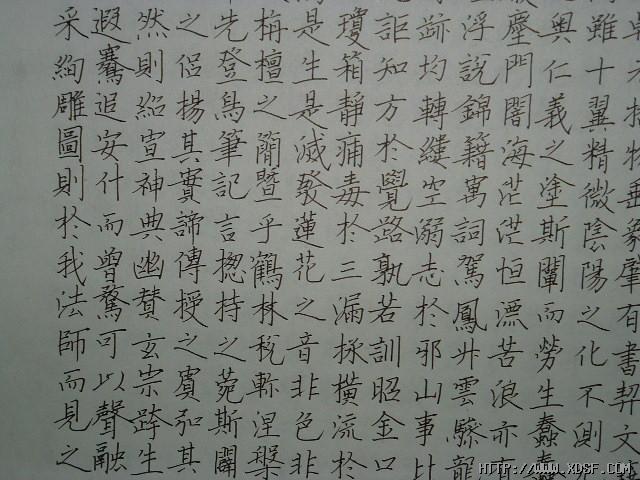 括物垂象肇有書契文
雖十翼精微陰陽之化不測
奧仁義之塗斯闡而勞生蠢蠢
塵門閣海茫茫恒漂苦浪亦有
浮說錦籍寓詞駕鳳升雲驂龍
跡均轉縷空溺志於邪山事比
詎知方於覺路孰若訓昭金口
瓊箱靜痛毒於三漏拯橫流於
是生是滅發蓮花之音非色非
栴檀之簡暨乎鶴林稅軫涅槃
先登鳥筆記言揔持之菀斯闢
之侶揚其實諦傳授之賓弘其
然則紹宣神典幽贊玄宗跨生
遐騫追安什而曾騖可以聲融
采絢雕圖則於我法師而見之
HTTP://WWW.XDSF.COM